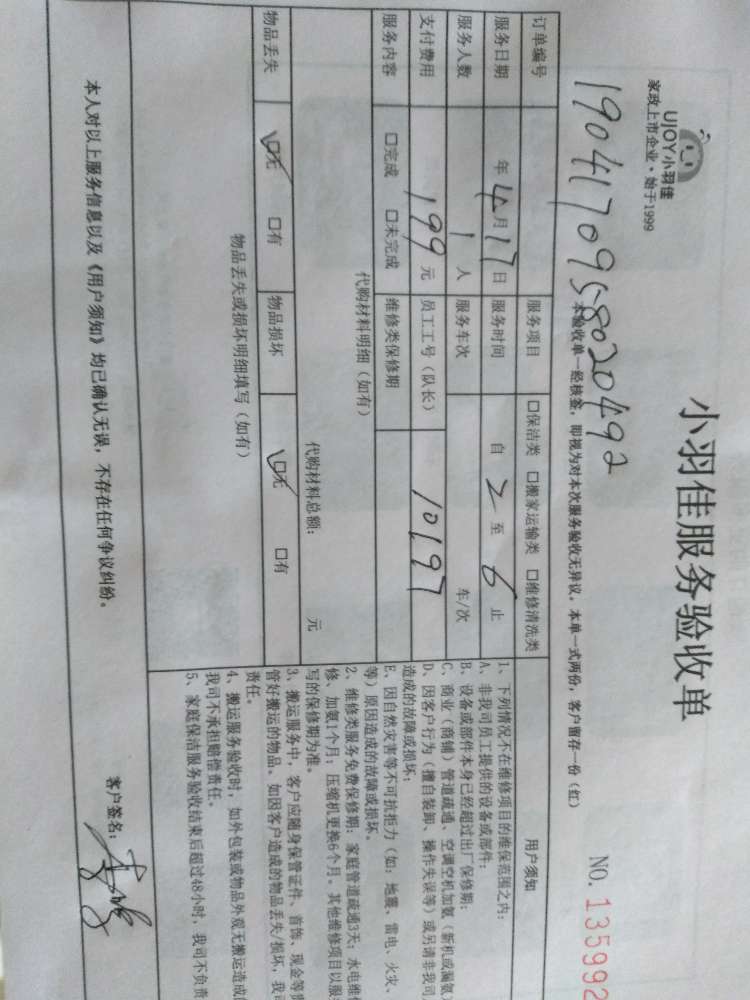 UJOY小羽佳
家政上市企业·始于1999
小羽佳服务验收单
NO.135992
1904170958020492
本验收单一经核签，即视为对本次服务验收无异议。本单一式两份，客户留存一份（红）
订单编号
服务项目 口保洁类 口搬家运输类 口维修清洗类
服务日期 年 4月 17日 服务时间 自 2 至 6 止
服务人数 1 人 服务车次 车/次
支付费用 199 元 员工工号（队长） 10197
服务内容 口完成 口未完成 维修类保修期
代购材料明细（如有）
代购材料总额： 元
物品丢失 口无 口有 物品损坏 口无 口有
物品丢失或损坏明细填写（如有）
用户须知
1、下列情况不在维修项目的维保范围之内：
A、非我司员工提供的设备或部件；
B、设备或部件本身已经超过出厂保修期；
C、商业（商铺）管道疏通、空调空机加氨（新机或漏氨
D、因客户行为（擅自装卸、操作失误等）或另请非我司
造成的故障或损坏；
E、因自然灾害等不可抗拒力（如：地震、雷电、火灾、
等）原因造成的故障或损坏。
2、维修类服务免费保修期：家庭管道疏通3天；水电维
修、加氨1个月；压缩机更换6个月。其他维修项目以服
写的保修期为准。
3、搬运服务中，客户应随身保管证件、首饰、现金等贵
管好搬运的物品、如因客户造成的物品丢失/损坏，我
责任。
4、搬运服务验收时，如外包装或物品外观无搬运造成
我司不承担赔偿责任。
5、家庭保洁服务验收结束后超过48小时，我司不负责
本人对以上服务信息以及《用户须知》均已确认无误，不存在任何争议纠纷。
客户签名：